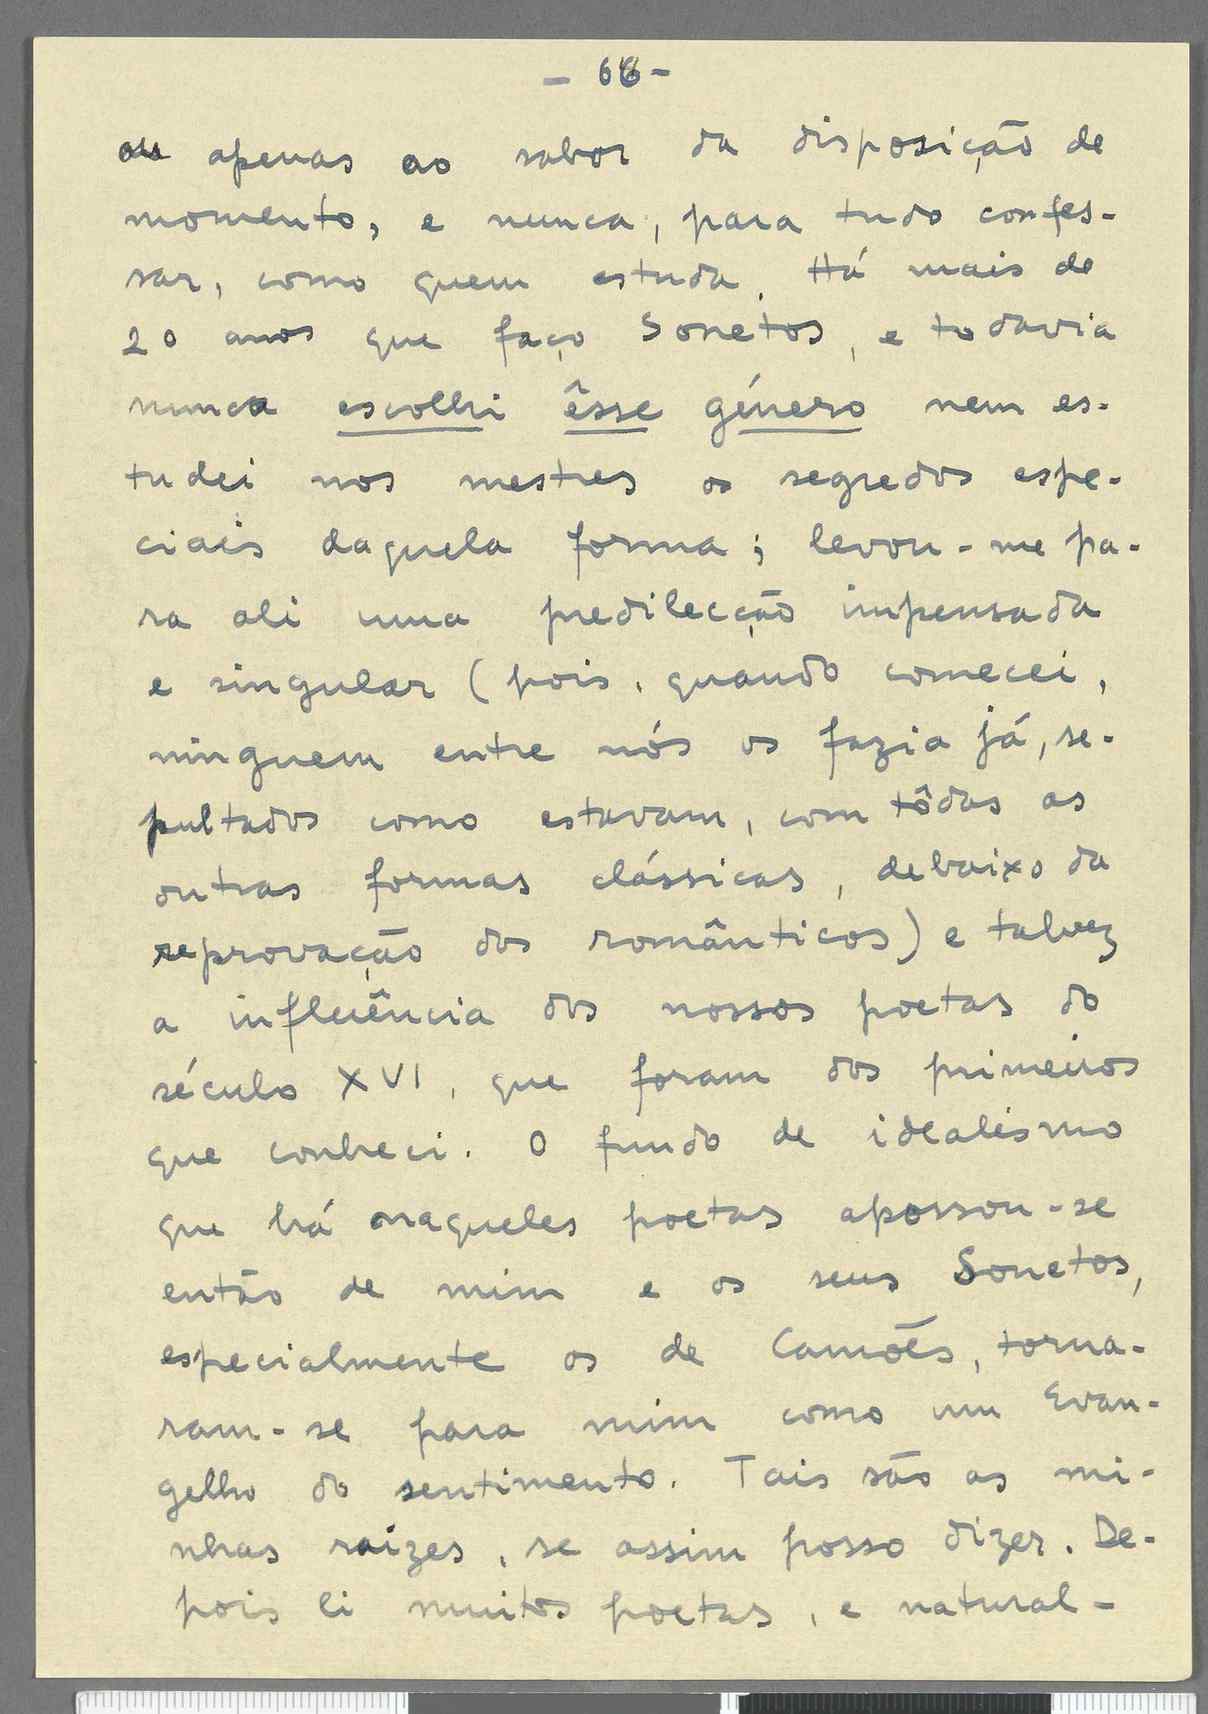 - 66 -
ou apenas ao sabor da disposição de
momento, e nunca, para tudo confes-
sar, como quem estuda. Há mais de
20 anos que faço Sonetos, e todavia
nunca escolhi êsse género nem es-
tudei nos mestres os segredos espe-
ciais daquela forma; levou-me pa-
ra ali uma predilecção impensada
e singular (pois, quando comecei,
ninguem entre nós os fazia já, se-
pultados como estavam, com tôdas as
outras formas clássicas, debaixo da
reprovação dos românticos) e talvez
a influência dos nossos poetas do
século XVI, que foram dos primeiros
que conheci. O fundo de idealismo
que há naqueles poetas apossou-se
então de mim e os seus Sonetos,
especialmente os de Camões, torna-
ram-se para mim como um Evan-
gelho do sentimento. Tais são as mi-
nhas raízes, se assim posso dizer. De-
pois li muitos poetas, e natural-